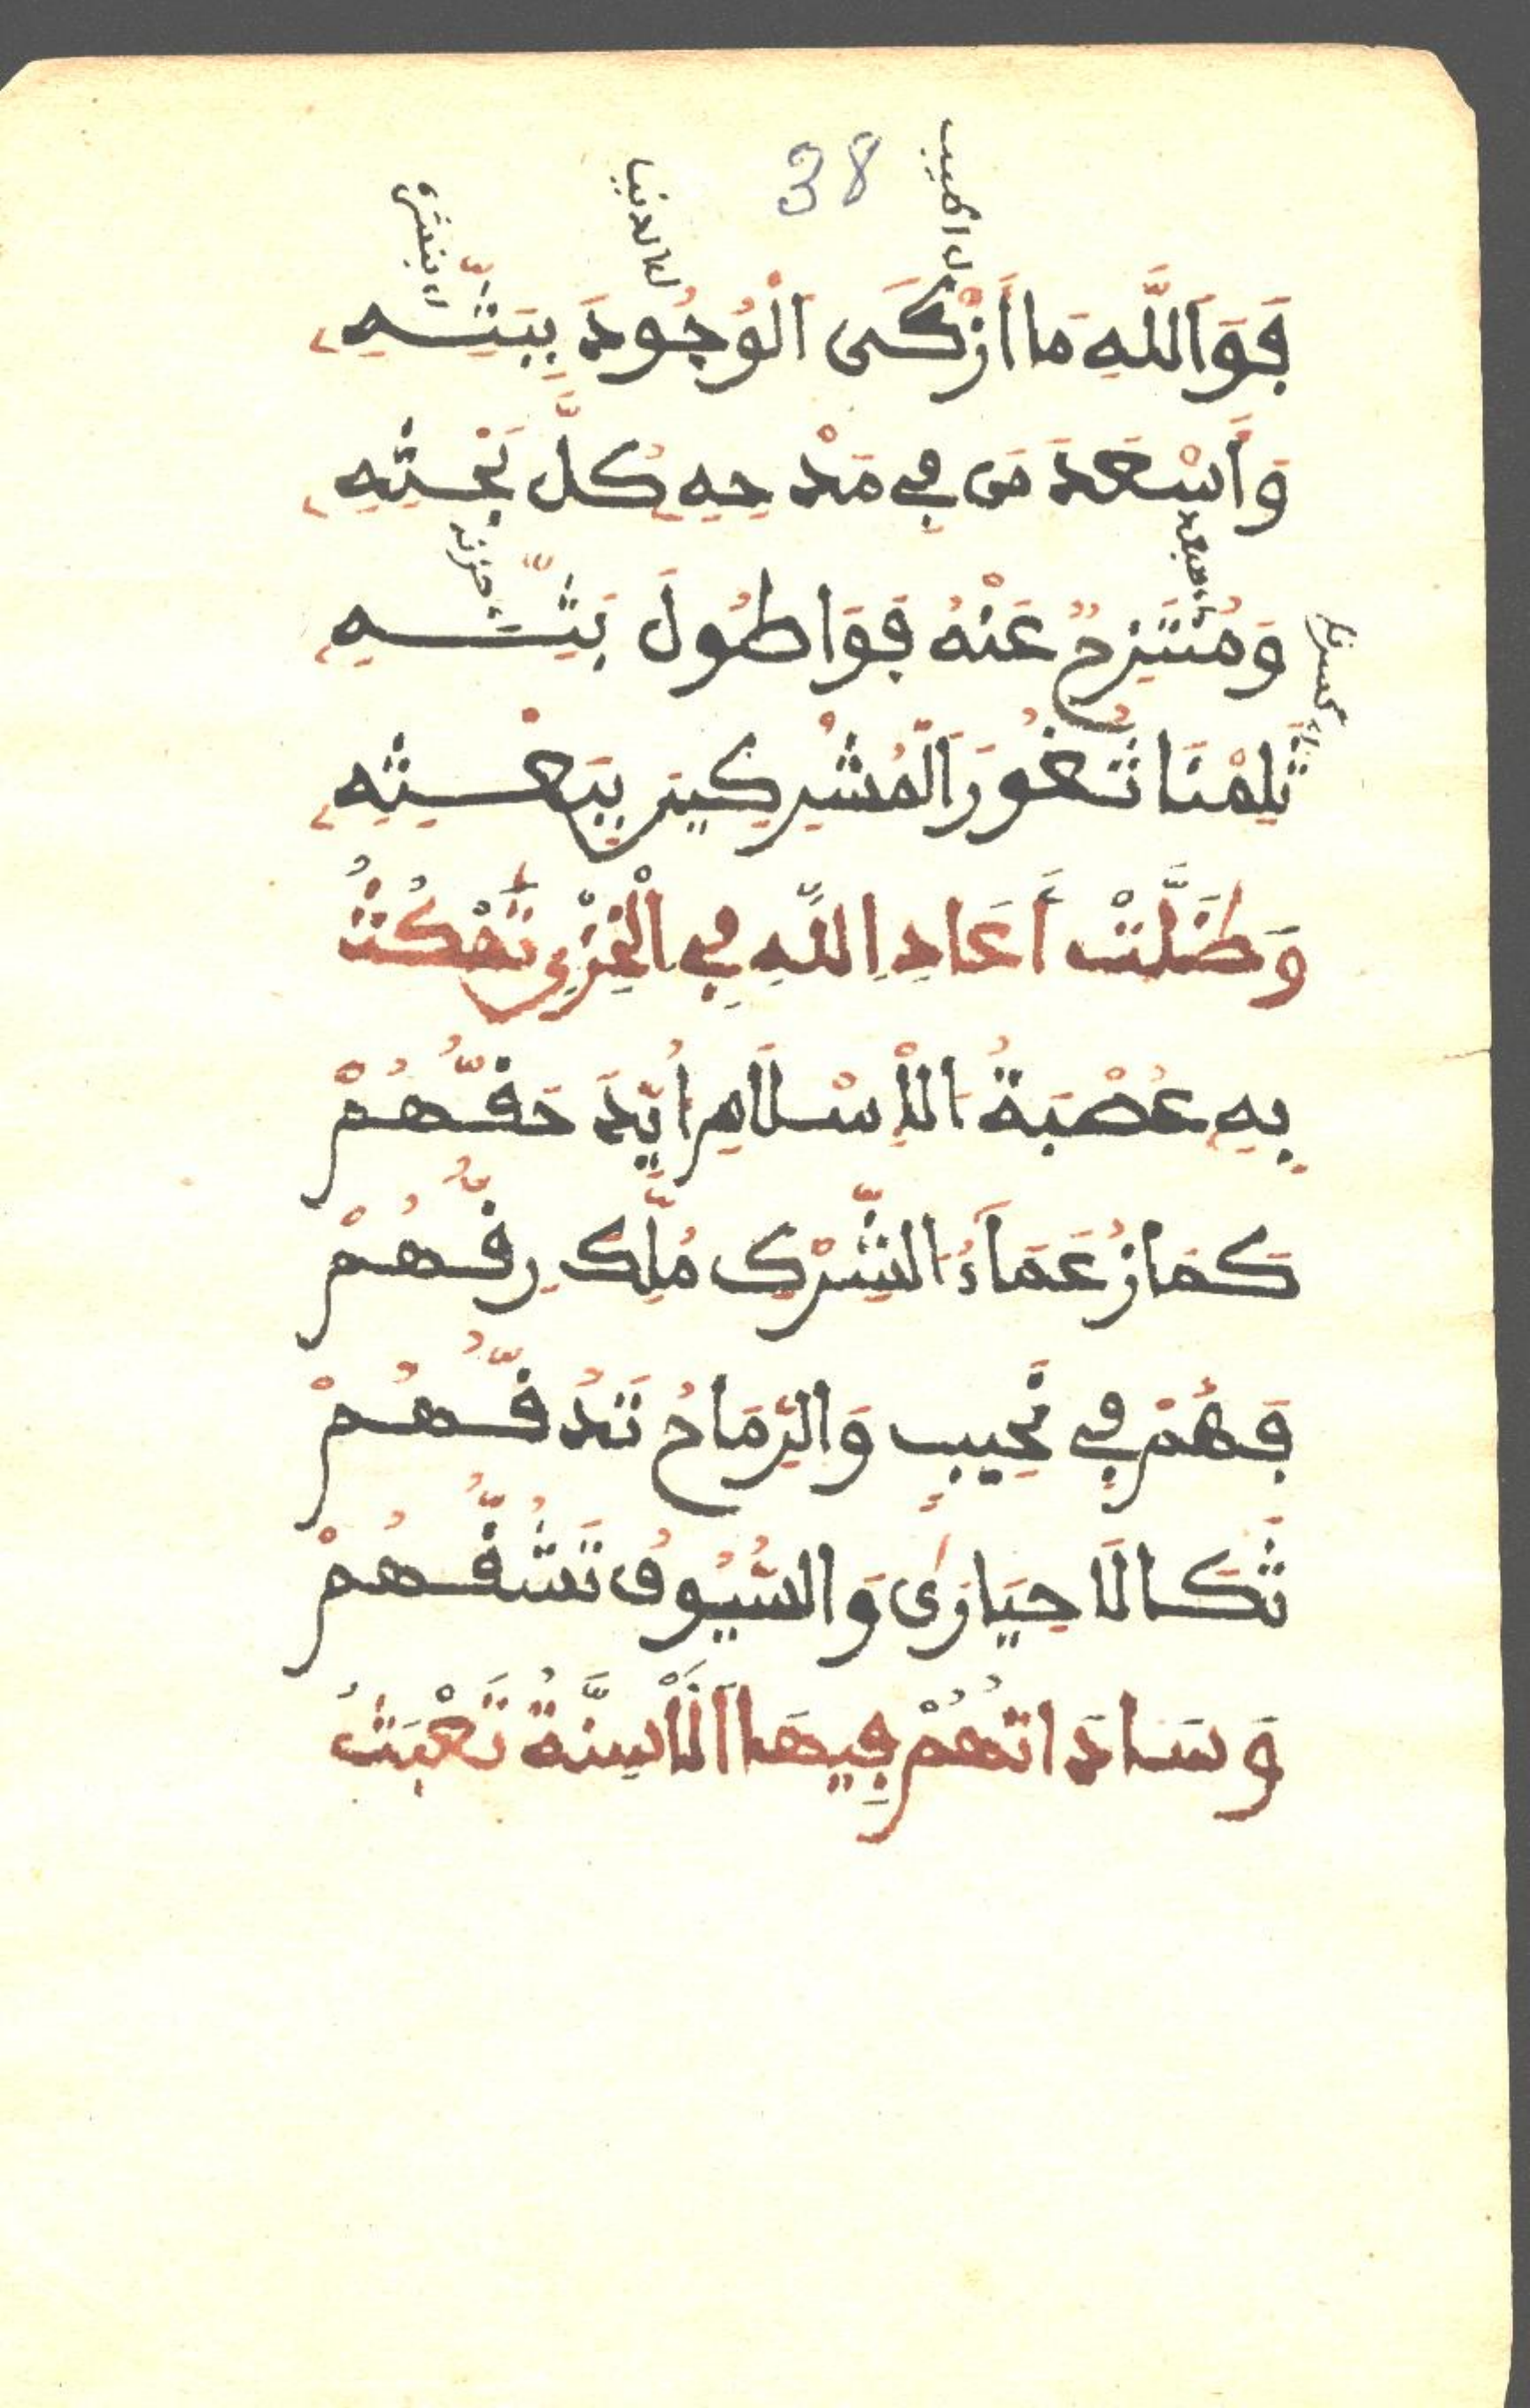 38
اطيب
الدنيا
بنشره
فَوَاللَّهِ مَا أَزْكَى الْوُجُودَ بِبَثِّهِ
وَأَسْعَدَ مَن فِي مَدْحِهِ كُلَّ بَحْثِهِ
مبعد
حزنه
وَمُنْتَزِحٌ عَنْهُ فَوَاطُولَ بَثِّهِ
كسرنا
ثَلِمْنَا ثُغُورَ الْمُشْرِكِينَ بِبَعْثِهِ
وَظَلَّتْ أَعَادِ اللَّهِ فِي الْخِزْيِ تَمْكُثُ
بِهِ عُصْبَةُ الْإِسْلَامِ أُيِّدَ حَقُّهُمْ
كَمَا زُعَمَاءُ الشِّرْكِ مُلِّكَ رِقُّهُمْ
فَهُمْ فِي نَحِيبٍ وَالرِّمَاحُ تَدُقُّهُمْ
ثَكَالَا حَيَارَى وَالسُّيُوفُ تَشُقُّهُمْ
وَسَادَاتُهُمْ فِيهَا الْأَسِنَّةُ تَعْبَثُ